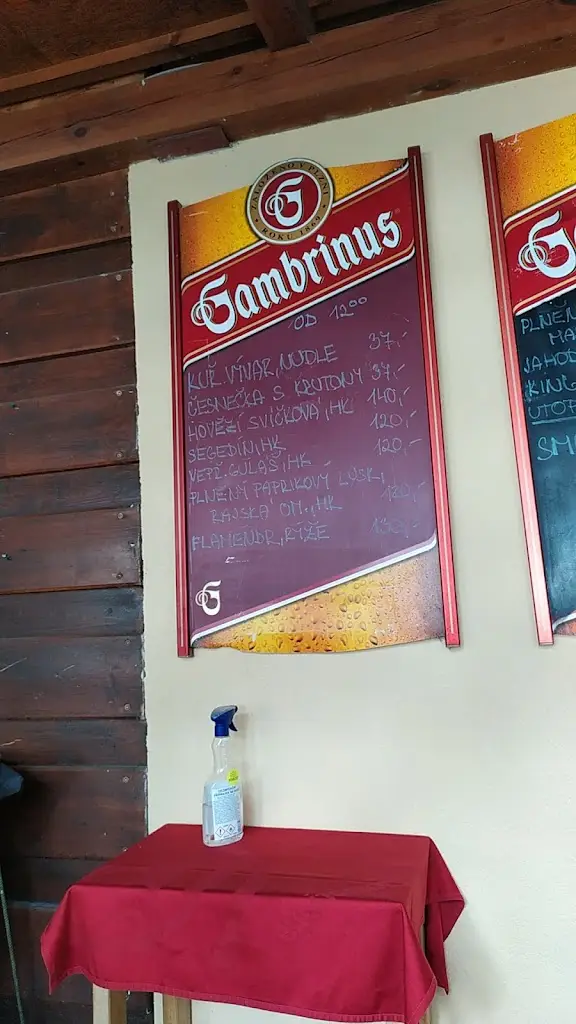 ZALOŽENO V PLZNI
G
ROKU 1869
Gambrinus
OD 12⁰⁰
KUŘ. VÝVAR, NUDLE 37,-
ČESNEČKA S KRUTONY 37,-
HOVĚZÍ SVÍČKOVÁ, HK 140,-
SEGEDÍN, HK 120,-
VEPŘ. GULÁŠ, HK 120,-
PLNĚNÝ PAPRIKOVÝ LUSK,
RAJSKÁ OM., HK
FLAMENDR, RÝŽE 130,-
G
G
PLNĚN
MA
JAHOD
KING
UTOP
SM